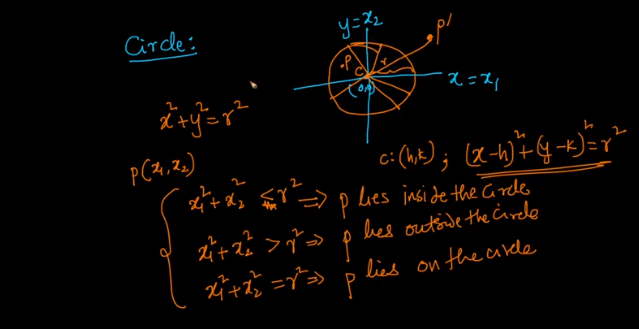 Circle:
y=x₂
p'
.p
r
C
(0,0)
x=x₁
x²+y²=r²
C:(h,k) ; (x-h)²+(y-k)²=r²
p(x₁,x₂)
x₁²+x₂² < r² ⇒ p lies inside the Circle
x₁²+x₂² > r² ⇒ p lies outside the Circle
x₁²+x₂² = r² ⇒ p lies on the circle